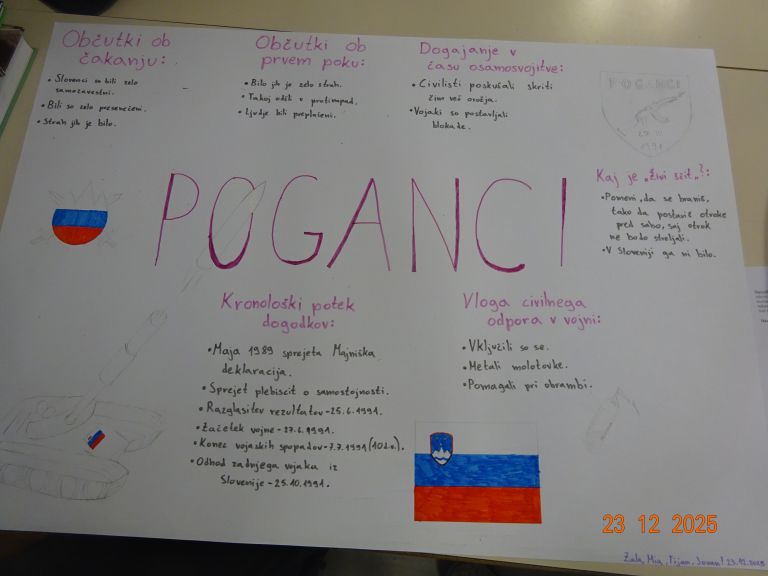 Občutki ob
čakanju:
• Slovenci so bili zelo
samozavestni.
• Bili so zelo presenečeni.
• Strah jih je bilo.
Občutki ob
prvem poku:
• Bilo jih je zelo strah.
• Takoj odšli v protinapad.
• Ljudje bili preplašeni.
Dogajanje v
času osamosvojitve:
• Civilisti poskušali skriti
čim več orožja.
• Vojaki so postavljali
blokade.
POGANCI
1991
Kaj je "živi ščit"?:
• Pomeni, da se braniš,
tako da postaviš otroke
pred sabo, saj otrok
ne bodo streljali.
• V Sloveniji ga ni bilo.
POGANCI
Kronološki potek
dogodkov:
• Maja 1989 sprejeta Majniška
deklaracija.
• Sprejet plebiscit o samostojnosti.
• Razglasitev rezultatov - 25.6.1991.
• Začetek vojne - 27.6.1991.
• Konec vojaških spopadov - 7.7.1991 (10 dni).
• Odhod zadnjega vojaka iz
Slovenije - 25.10.1991.
Vloga civilnega
odpora v vojni:
• Vključili so se.
• Metali molotovke.
• Pomagali pri obrambi.
23 12 2025
Mia, Tijan, 23.12.2025